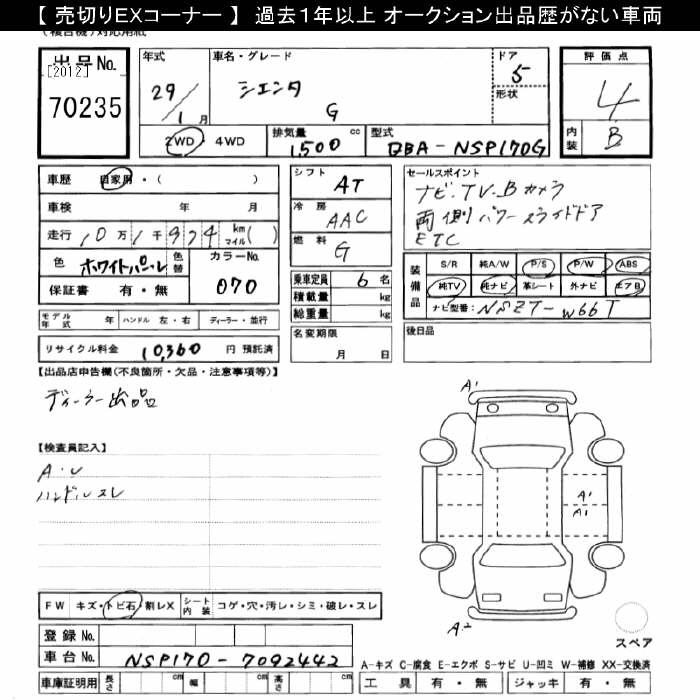 【 売切りEXコーナー 】 過去1年以上 オークション出品歴がない車両
(複合機)対応用紙
出品No.
[2012]
70235
年式
29/1月
車名・グレード
シエンタ
G
ドア
5
形状
2WD ・ 4WD
排気量 1,500 cc
型式 DBA-NSP170G
評価点
4
内装 B
車歴 自家用・( )
車検 年 月
走行 10万1千974 km マイル( )
色 ホワイトパール 色替
カラーNo. 070
保証書 有・無
モデル年式 年 ハンドル 左・右 ディーラー・並行
リサイクル料金 10,360 円 預託済
シフト AT
冷房 AAC
燃料 G
乗車定員 6 名
積載量 kg
総重量 kg
名変期限
月 日
セールスポイント
ナビ・TV・Bカメラ
両側パワースライドドア
ETC
装備品
S/R 純A/W P/S P/W ABS
純TV 純ナビ 革シート 外ナビ エアB
ナビ型番: NSZT-W66T
後日品
【出品店申告欄(不良箇所・欠品・注意事項等)】
ディーラー出品
【検査員記入】
A・U
ハンドルスレ
A1
A1
A1
A2
スペア
FW キズ・トビ石・割レX
シート内装 コゲ・穴・汚レ・シミ・破レ・スレ
登録No.
車台No. NSP170-7092442
車庫証明用 長さ cm 幅 cm 高さ cm
A-キズ C-腐食 E-エクボ S-サビ U-凹ミ W-補修 XX-交換済
工具 有・無 ジャッキ 有・無